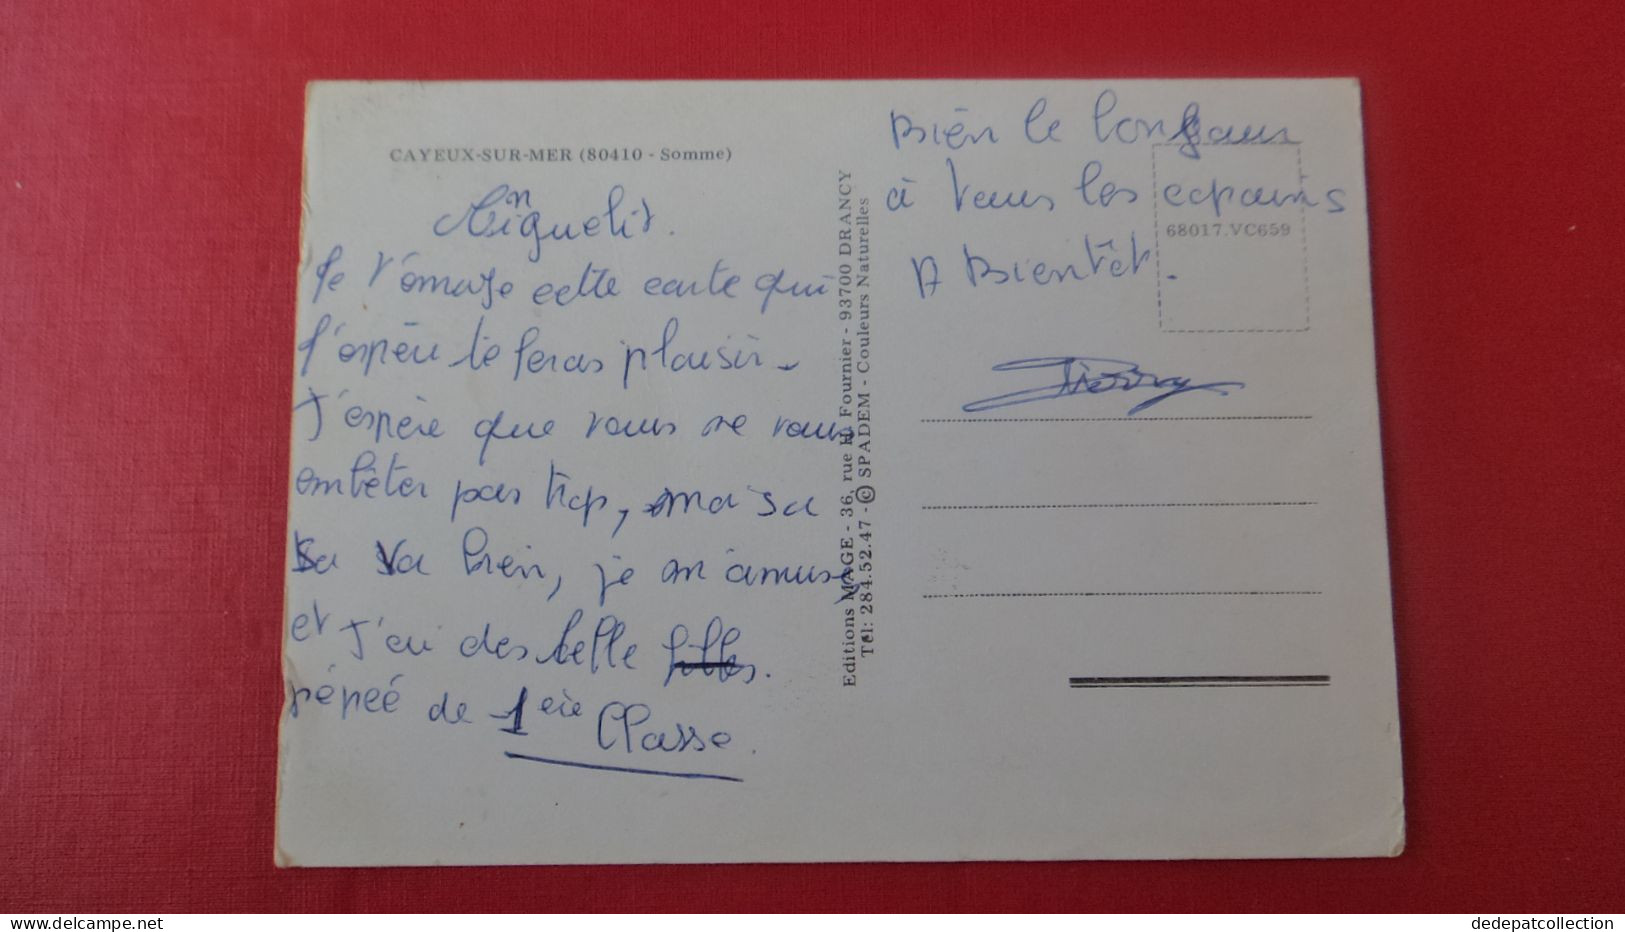 CAYEUX-SUR-MER (80410 - Somme)
Je t'envoye cette carte qui
j'espère te feras plaisir.
J'espère que vous ne vous
embêter pas trop, moi sa
sa va bien, je m'amuse
et J'ai des belle filles.
pépée de 1ère Classe.
Editions MAGE - 36, rue H. Fournier - 93700 DRANCY
Tél: 284.52.47 - © SPADEM - Couleurs Naturelles
Bien le bonjour
à tous les copains
68017.VC659
A Bientôt.
Thierry
dedepatcollection